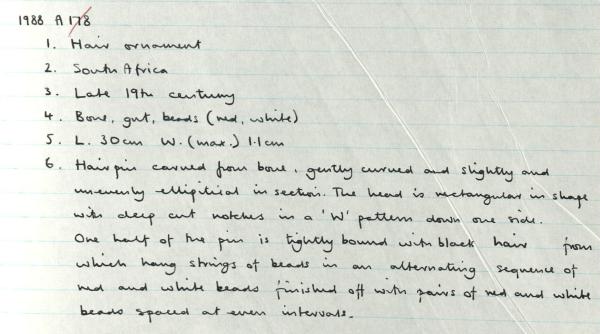 1988 A 178
1. Hair ornament
2. South Africa
3. Late 19th century
4. Bone, gut, beads (red, white)
5. L. 30cm W. (max.) 1.1cm
6. Hairpin carved from bone, gently curved and slightly and
unevenly elliptical in section. The head is rectangular in shape
with deep cut notches in a 'W' pattern down one side.
One half of the pin is tightly bound with black hair from
which hang strings of beads in an alternating sequence of
red and white beads finished off with pairs of red and white
beads spaced at even intervals.